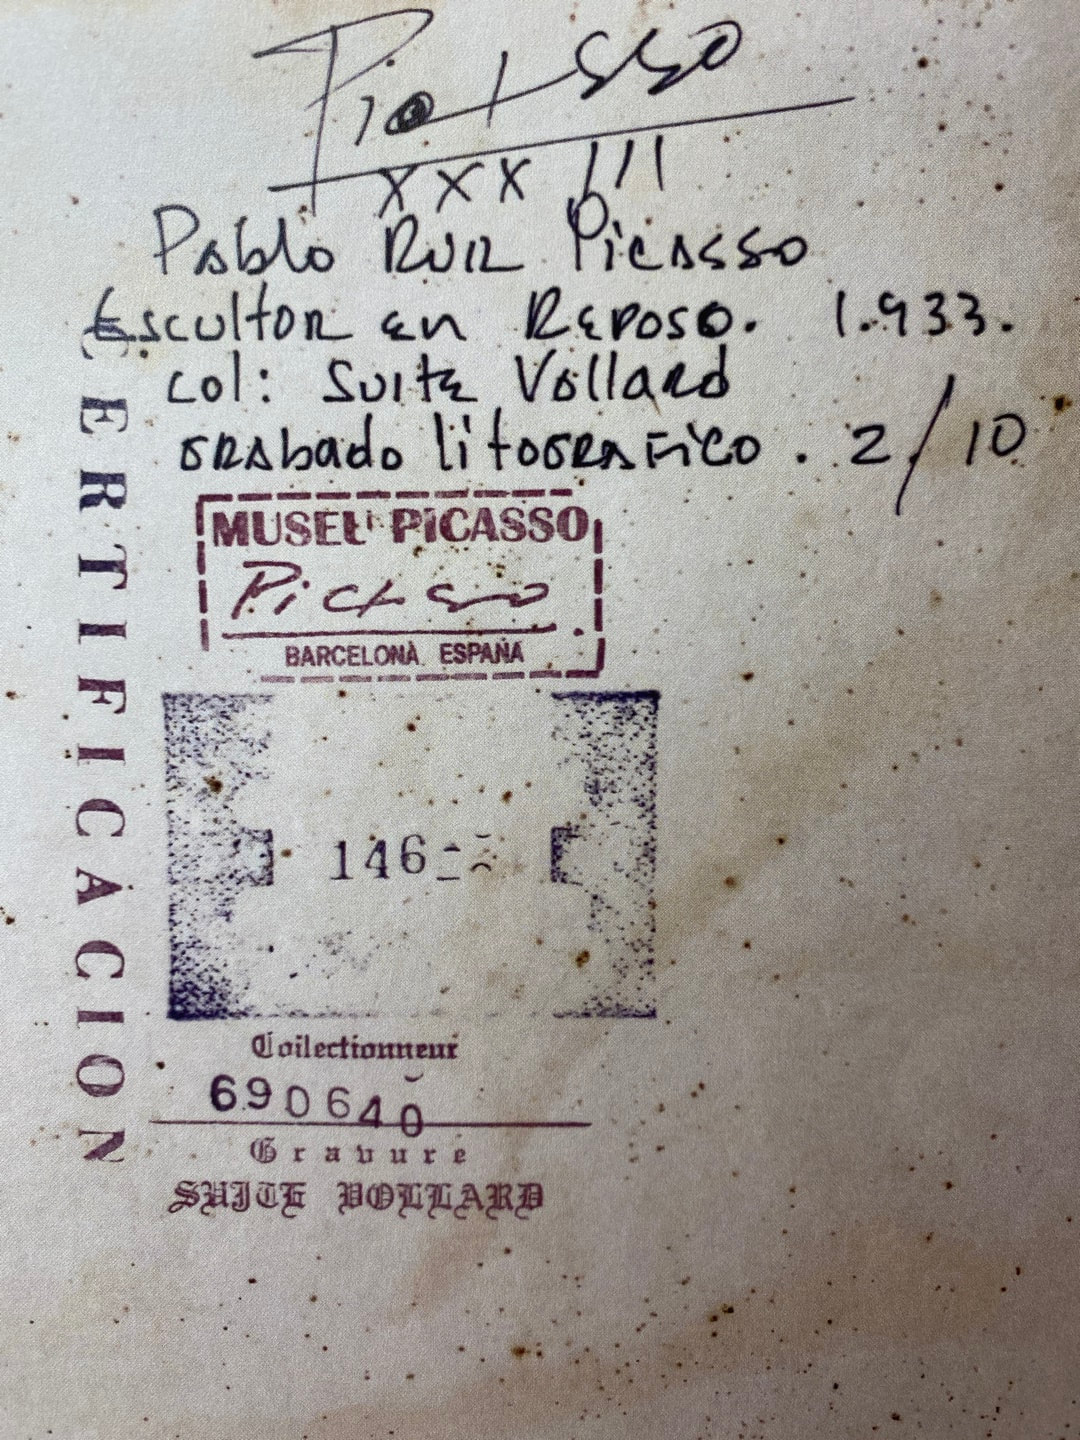 Picasso
XXX III
Pablo Ruiz Picasso
Escultor en Reposo. 1.933.
col: Suite Vollard
Grabado litografico. 2/10
CERTIFICACION
MUSEU PICASSO
Picasso
BARCELONA ESPAÑA
146
Collectionneur
690640
Gravure
SUITE VOLLARD